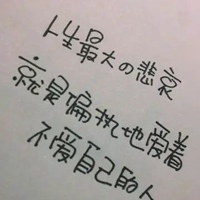 人生最大の悲哀
就是偏执地爱着
不爱自己的人